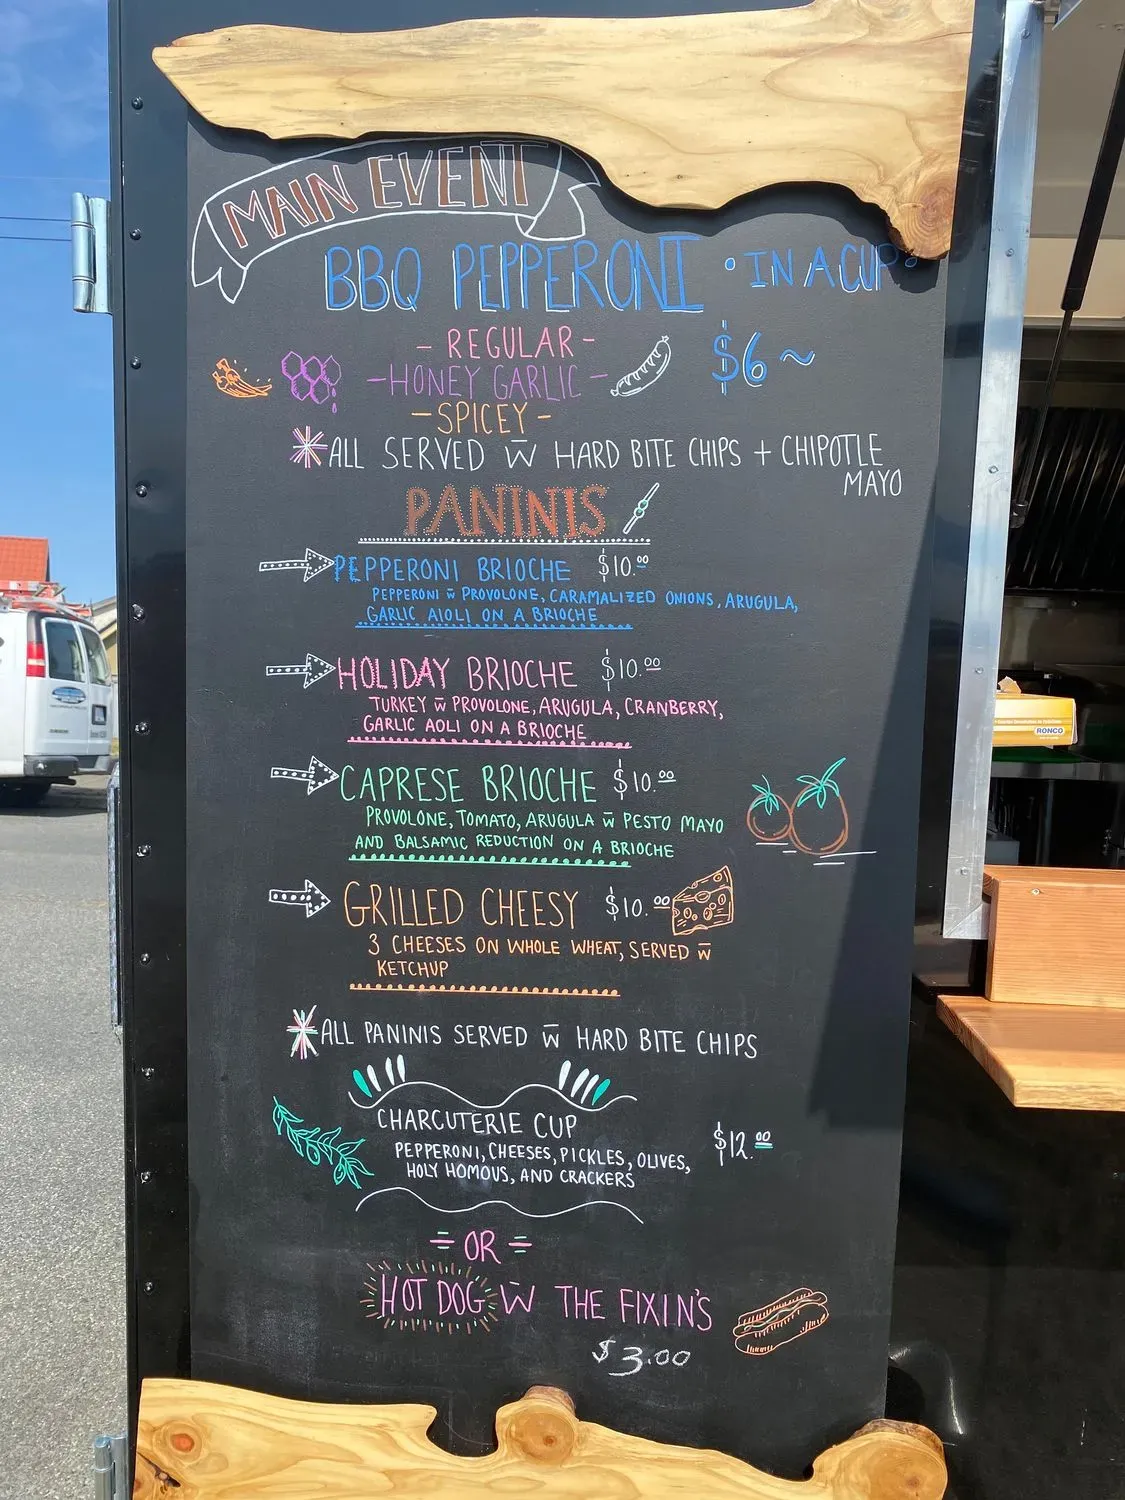 MAIN EVENT
BBQ PEPPERONI • IN A CUP •
- REGULAR -
$6 ~
- HONEY GARLIC -
- SPICEY -
*ALL SERVED w̅ HARD BITE CHIPS + CHIPOTLE
MAYO
PANINIS
PEPPERONI BRIOCHE $10.00
PEPPERONI w̅ PROVOLONE, CARAMALIZED ONIONS, ARUGULA,
GARLIC AIOLI ON A BRIOCHE
HOLIDAY BRIOCHE $10.00
TURKEY w̅ PROVOLONE, ARUGULA, CRANBERRY,
GARLIC AOLI ON A BRIOCHE
CAPRESE BRIOCHE $10.00
PROVOLONE, TOMATO, ARUGULA w̅ PESTO MAYO
AND BALSAMIC REDUCTION ON A BRIOCHE
GRILLED CHEESY $10.00
3 CHEESES ON WHOLE WHEAT, SERVED w̅
KETCHUP
*ALL PANINIS SERVED w̅ HARD BITE CHIPS
CHARCUTERIE CUP $12.00
PEPPERONI, CHEESES, PICKLES, OLIVES,
HOLY HOMOUS, AND CRACKERS
= OR =
HOT DOG w̅ THE FIXIN'S
$3.00
RONCO